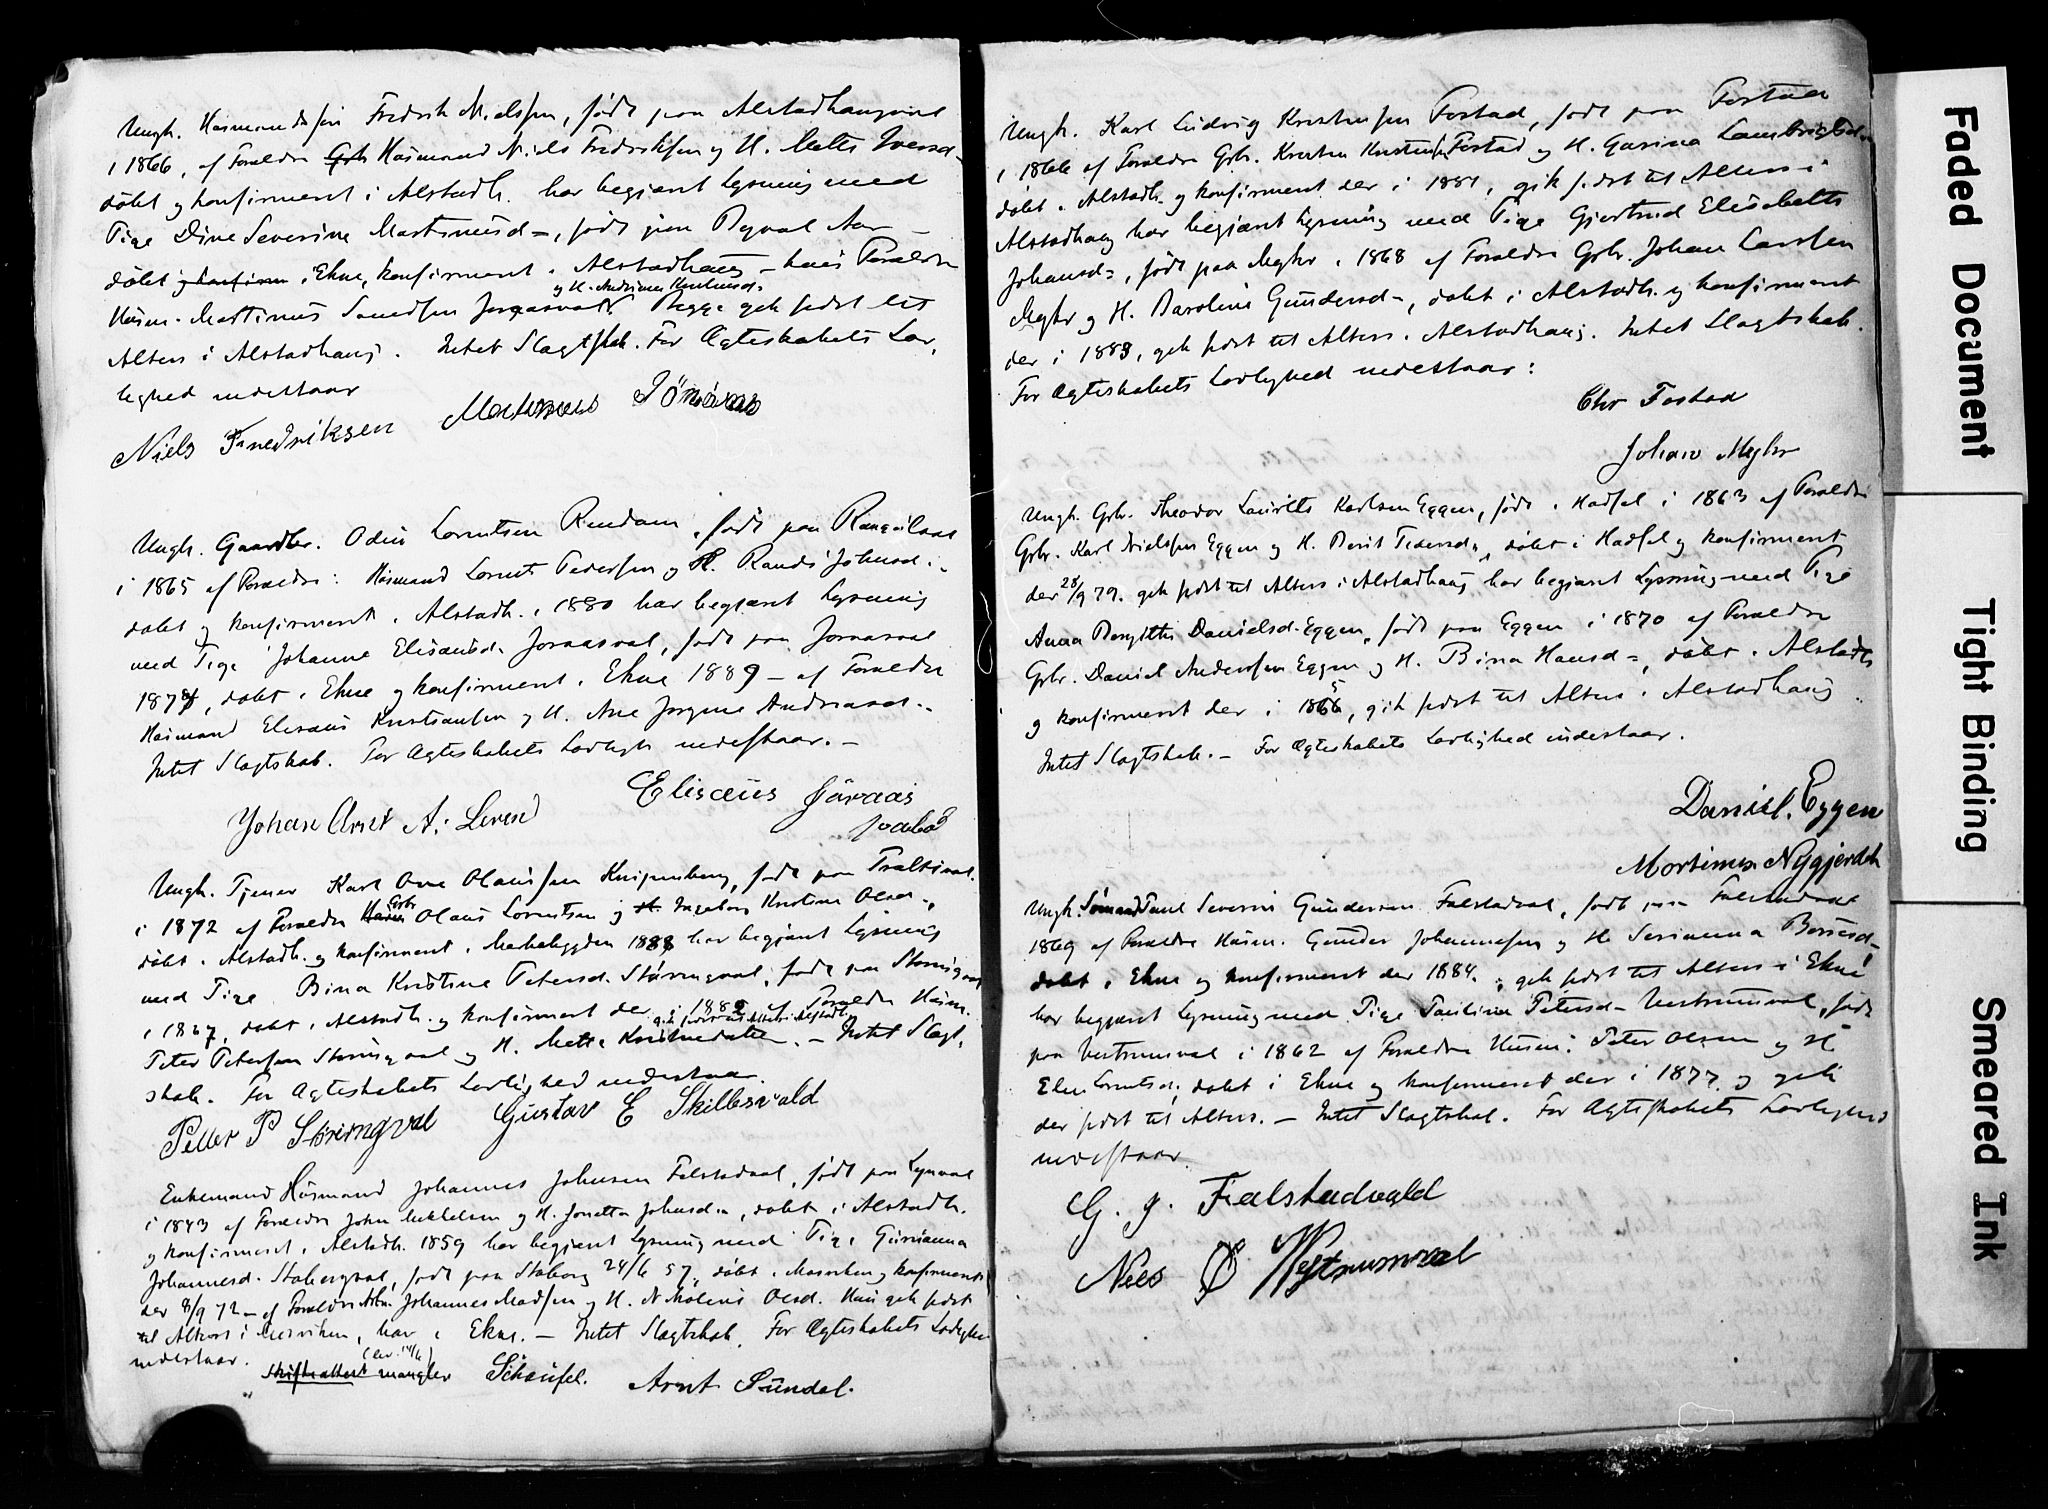 Ungk. Husmandssøn Fredrik Nielssen, født paa Alstadhaugval
i 1866, af Foraldre Husmand Niels Fredriksen og H. Mette Iversd-
døbt og konfirmeret i Alstadh. har begjæret Lysning med
Pige Dine Severine Martinusd-, født paa Aar
døbt i Ekne, konfirmeret i Alstadhaug – hans Foraldre
og H. Andrianna
Husm. Martinus Jøraasval. Begge gik sidst til
Alters i Alstadhaug. Intet Slagtskab. For Ægteskabets Lov-
lighed indestaar
Niels Fredriksen Martinus Jöraas
Ungk. Gaardbr. Odin Lorntsen Rindam, født paa
i 1865 af Foraldre: Husmand Lornts Pedersen og H. Randi Johnsd.-
døbt og konfirmeret i Alstadh. i 1880 har begjæret Lysning
med Pige Johanne Elisæusd. Joraasval, født paa Joraasval
187, døbt i Ekne og konfirmeret i Ekne 1889 – af Foraldre
Husmand Elisæus Kristiansen og H. Ane Jørgine Andreasd.-
Intet Slagtskab. For Ægteskabets Lovligh. indestaar.-
Elisæus Jöraas
Johan Arnt A. Leren
Ungk. Tjener Karl Ove Olaussen Knipenberg, født paa
i 1872 af Foraldre Grbr. Olaus Lorntsen og H. Ingeborg Kristine Olsd.-,
døbt i Alstadh. og konfirmeret i Markabygden 1888 har begjæret Lysning
med Pige Bina Kristine Petersd. Størengval, født paa
i 1867, døbt i Alstadh. og konfirmeret der i 188 af Foraldre Husm.
gik sidst til Alters i Alstadh.
Peter Petersen og H. Mette – Intet Slagt-
skab. For Ægteskabets Lovlighed indestaar.
Petter P Störengval Gustav E Skillesvald
Enkemand Husmand Johannes Johnsen Falstadval, født paa Lynval
i 1843 af Foraldre John Mikkelsen og H. Jonetta Johnsd-, døbt i Alstadh.
og konfirmeret i Alstadh. 1859 har begjæret Lysning med Pige Gurianna
Johannesd. Stabergval, født paa Staberg 24/6 57, døbt i Mosviken og konfirmeret
der 8/9 72 – af Foraldre Johannes Madsen og H. Nikoline Olsd. Hun gik sidst
til Alters i Mosviken, han i Ekne. – Intet Slagtskab. For Ægteskabets Lovlighed
indestaar.
Skifteattest mangler Arnt Sundal.
Ungk. Karl Ludvig Kristensen Fostad, født paa Fostad
i 1866 af Foraldre Grbr. Kristen Kristensen Fostad og H. Gurina
døbt i Alstadh. og konfirmeret der i 1881, gik sidst til Alters i
Alstadhaug har begjæret Lysning med Pige Gjertrud Elisabeth
Johansd-, født paa Myhr i 1868 af Foraldre Grbr. Johan Larssen
Myhr og H. Gundersd-, døbt i Alstadh. og konfirmeret
der i 1883, gik sidst til Alters i Alstadhaug. Intet Slagtskab.
For Ægteskabets Lovlighed indestaar:
Chr Fostad
Johan Myhr
Ungk. Grbr. Theodor Laurits Karlsen Eggen, født i Hadsel i 1863 af Foraldre
Grbr. Karl Nielssen Eggen og H. Berit Pedersd-, døbt i Hadsel og konfirmeret
der 28/9 79. gik sidst til Alters i Alstadhaug har begjæret Lysning med Pige
Anna Bergitte Danielsd. Eggen, født paa Eggen i 1870 af Foraldre
Grbr. Daniel Anderssen Eggen og H. Bina Hansd-, døbt i Alstadh.
og konfirmeret der i 18, gik sidst til Alters i Alstadhaug.
Intet Slagtskab. – For Ægteskabets Lovlighed indestaar.
Daniel. Eggen
Mortinus Nygjerdet
Ungk. Sømand Paul Severin Gundersen Falstadval, født paa Falstadval
1869 af Foraldre Husm. Gunder Johannessen og H. Serianna
døbt i Ekne og konfirmeret der 1884. gik sidst til Alters i Ekne
har begjæret Lysning med Pige Paulina Petersd- Vestrumval, født
paa Vestrumval i 1862 af Foraldre Husm. Peter Olsen og H.
Elen Lorntsd., døbt i Ekne og konfirmeret der i 1877 og gik
der sidst til Alters. – Intet Slagtskab. For Ægteskabets Lovlighed
indestaar.
G. J. Falstadvald
Niels Ø Vestrumval
Faded Document
Tight Binding
Smeared Ink